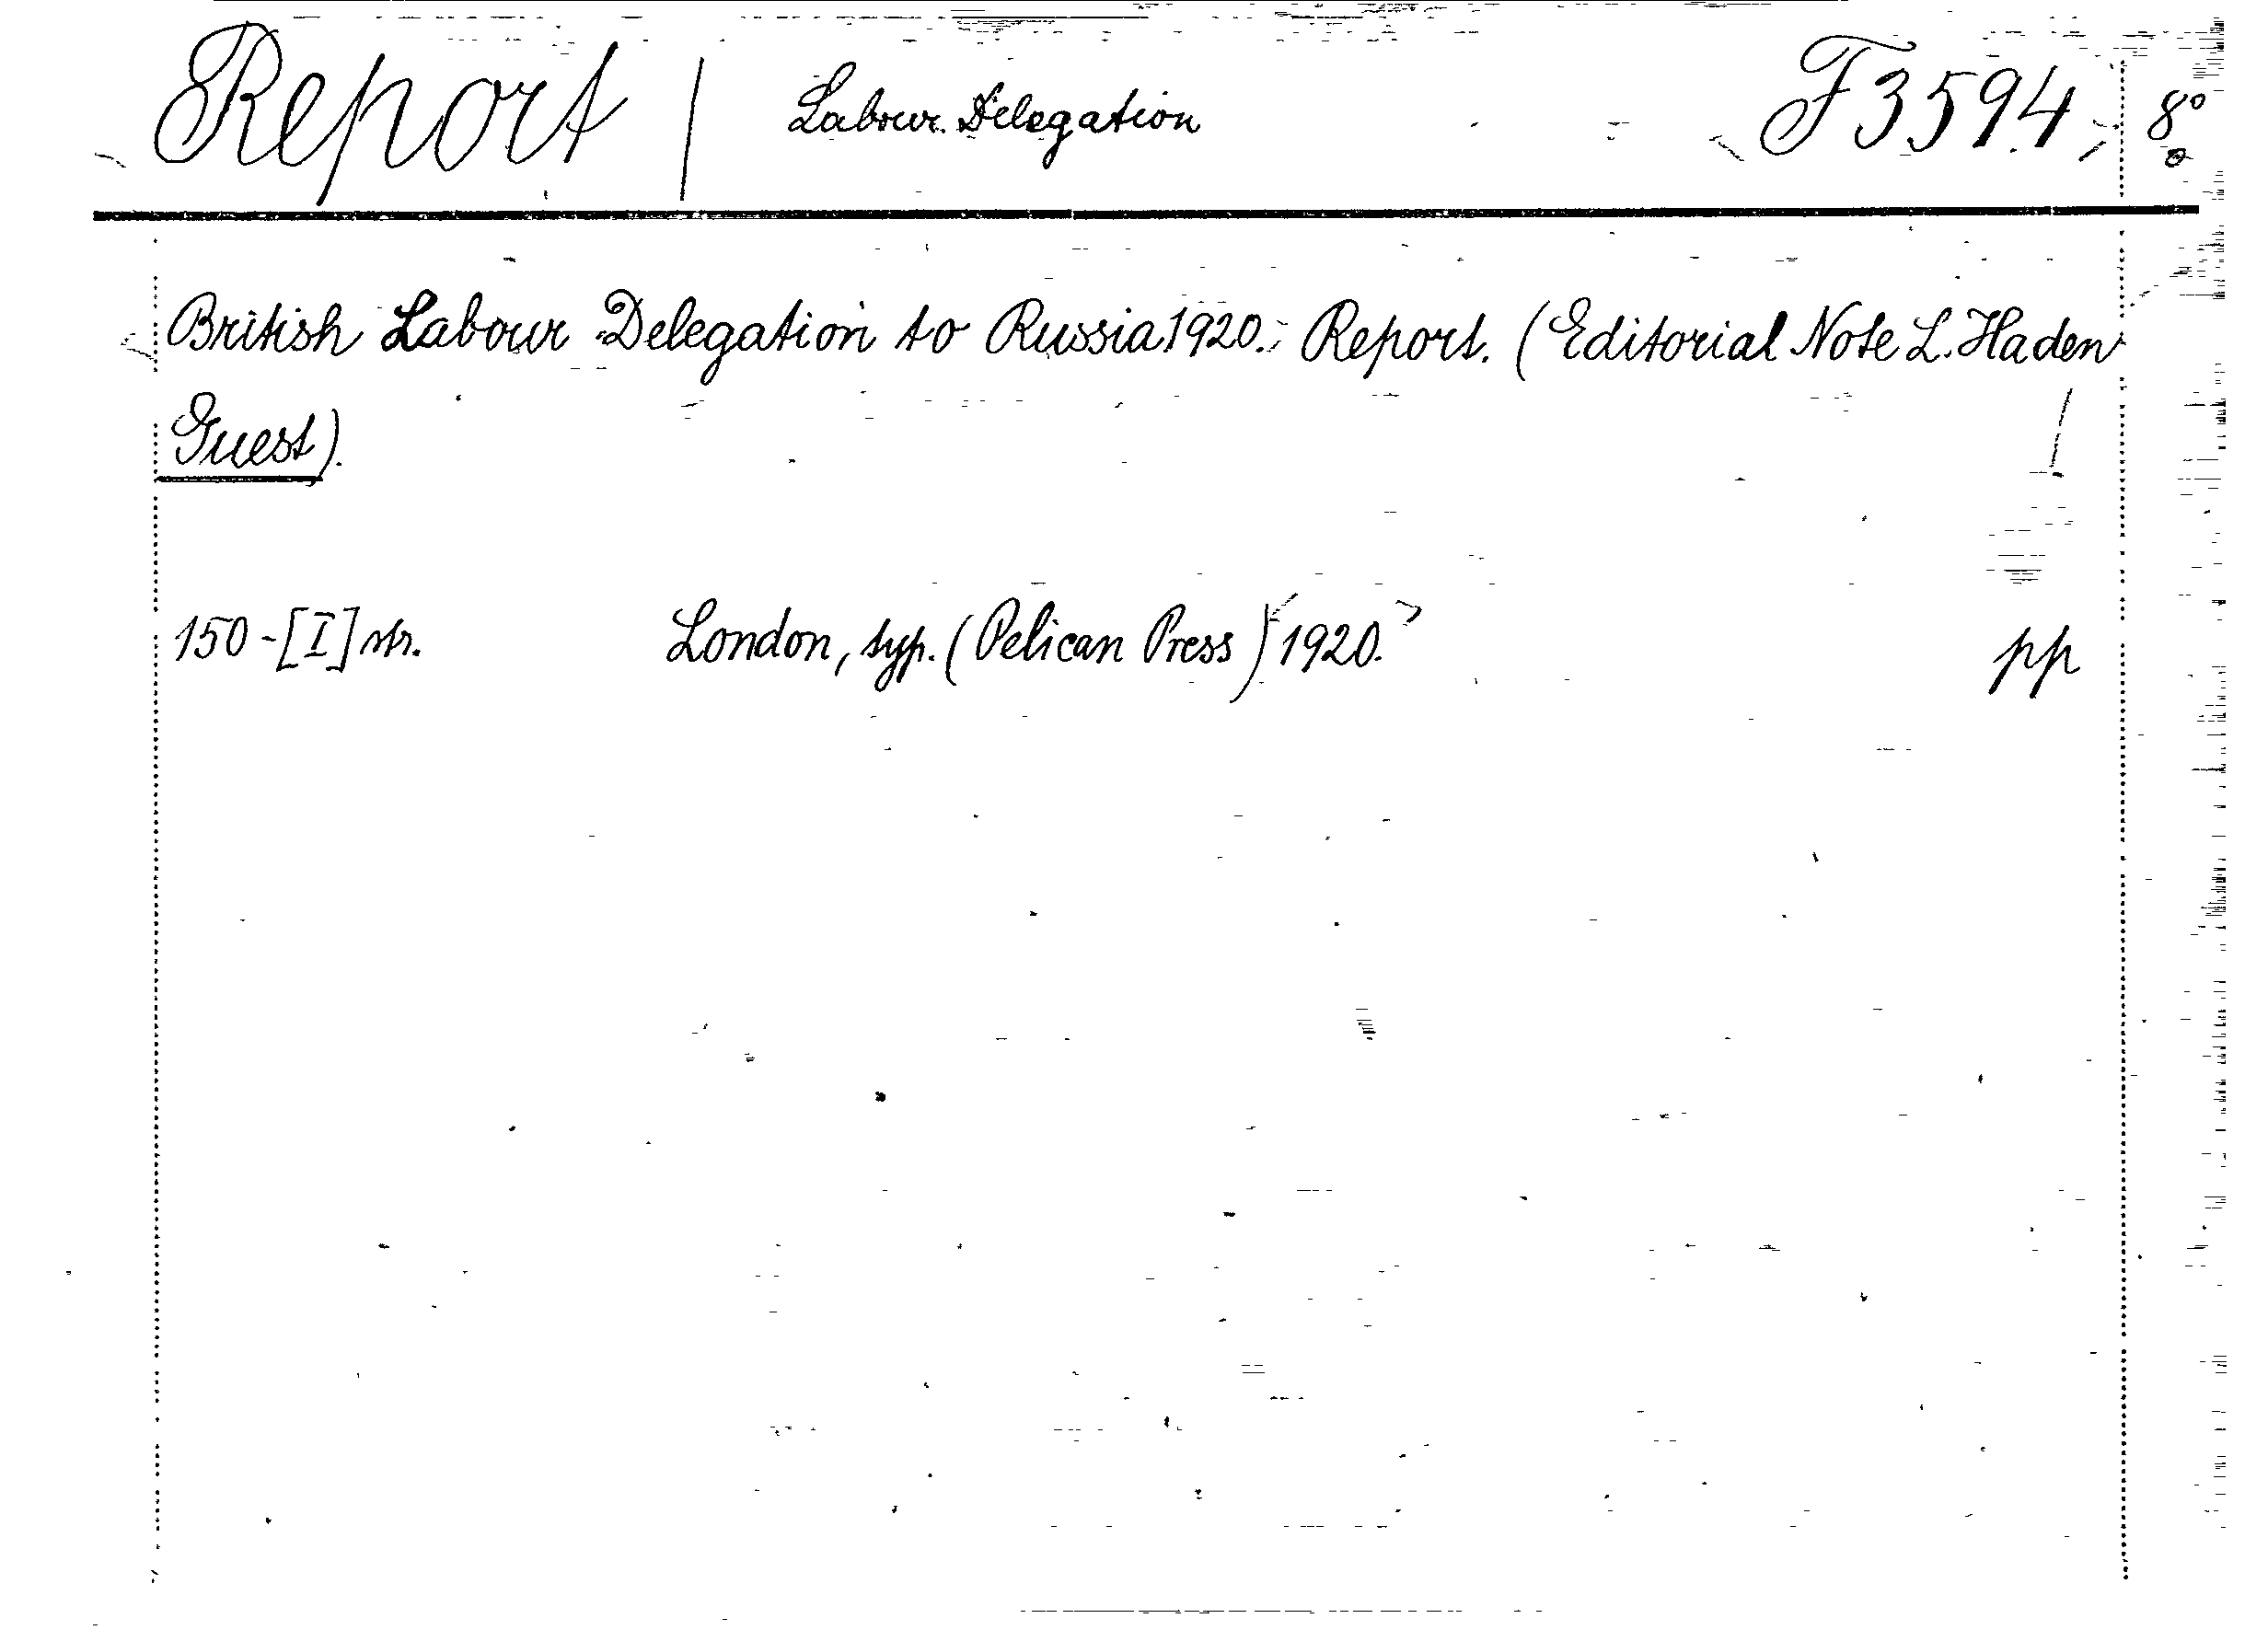 Report | Labour Delegation F 3594 8°
British Labour Delegation to Russia 1920. Report. (Editorial Note L. Haden
Guest).
150-[I] str. London, typ. (Pelican Press) 1920. pp